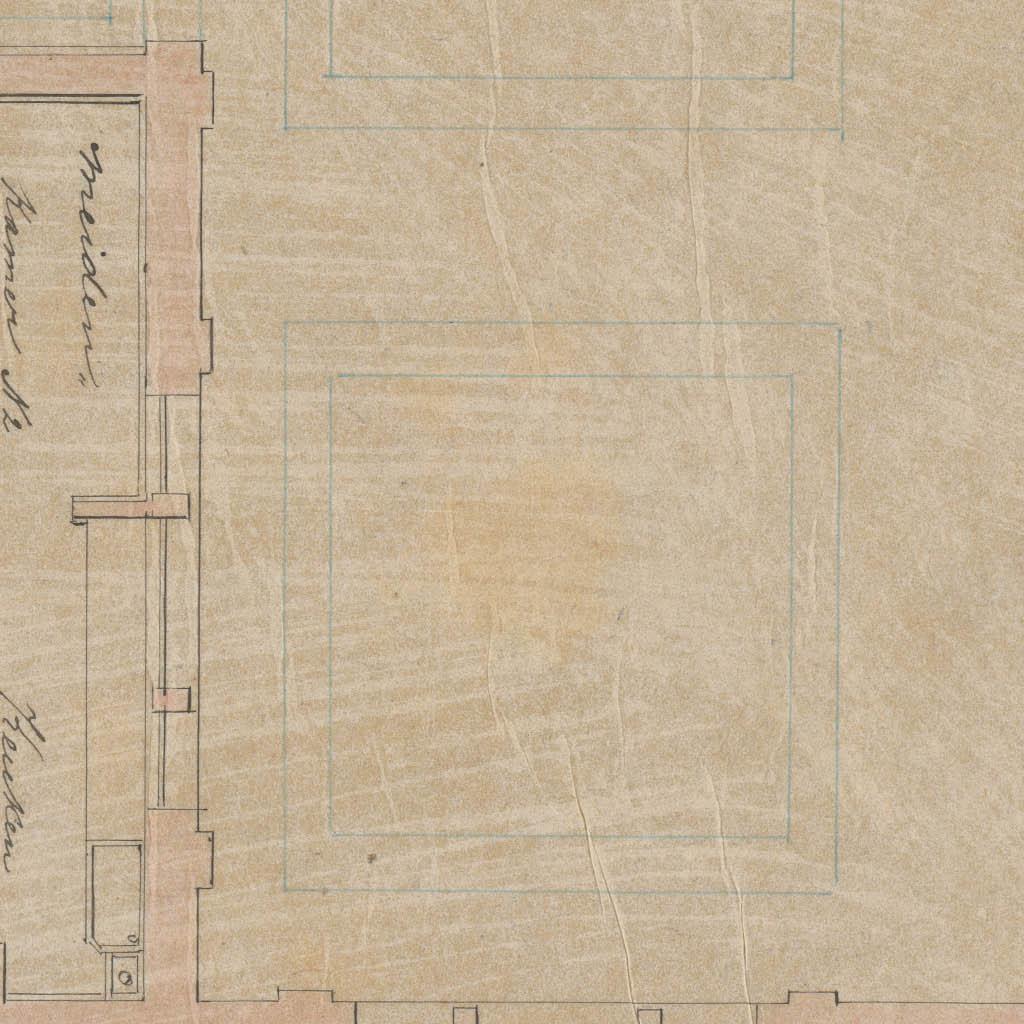 "meiden"
Kamer N2
Keuken